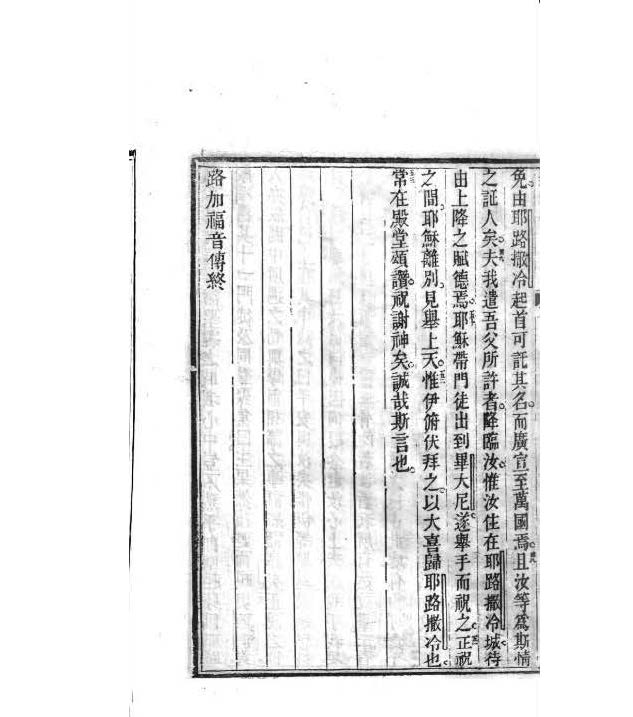 免由耶路撒冷起首可託其名而廣宣至萬國焉且汝等為斯情
之証人矣夫我遣吾父所許者降臨汝惟汝住在耶路撒冷城待
由上降之賦德焉耶穌帶門徒出到畢大尼遂舉手而祝之正祝
之間耶穌離別見舉上天惟伊俯伏拜之以大喜歸耶路撒冷也
常在殿堂頌讚祝謝神矣誠哉斯言也
路加福音傳終